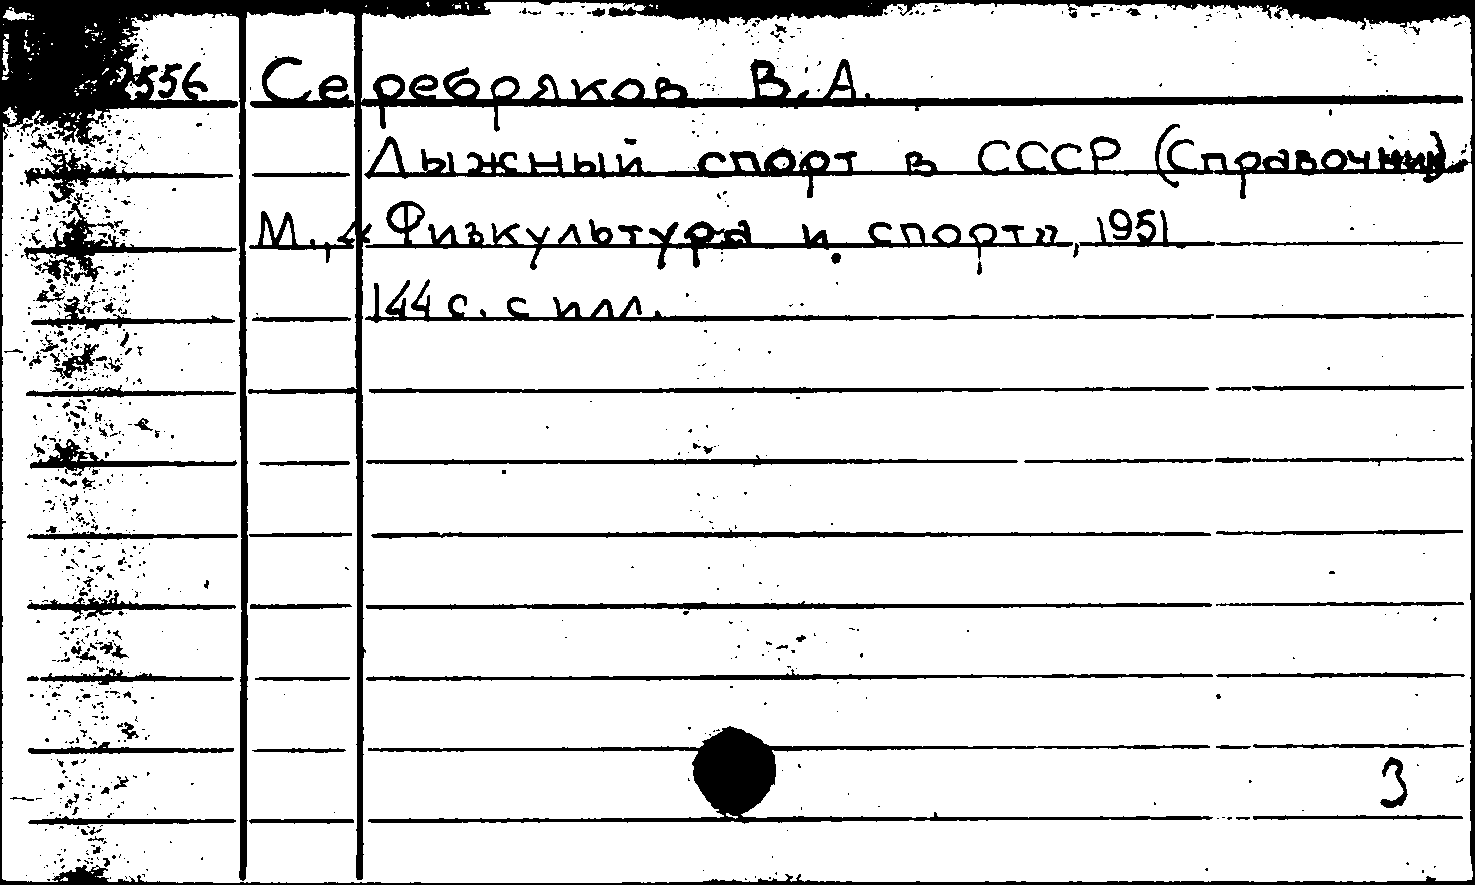 Серебряков В.А.
Лыжный спорт в СССР (Справочник).
М., «Физкультура и спорт», 1951
144 с. с илл.
3